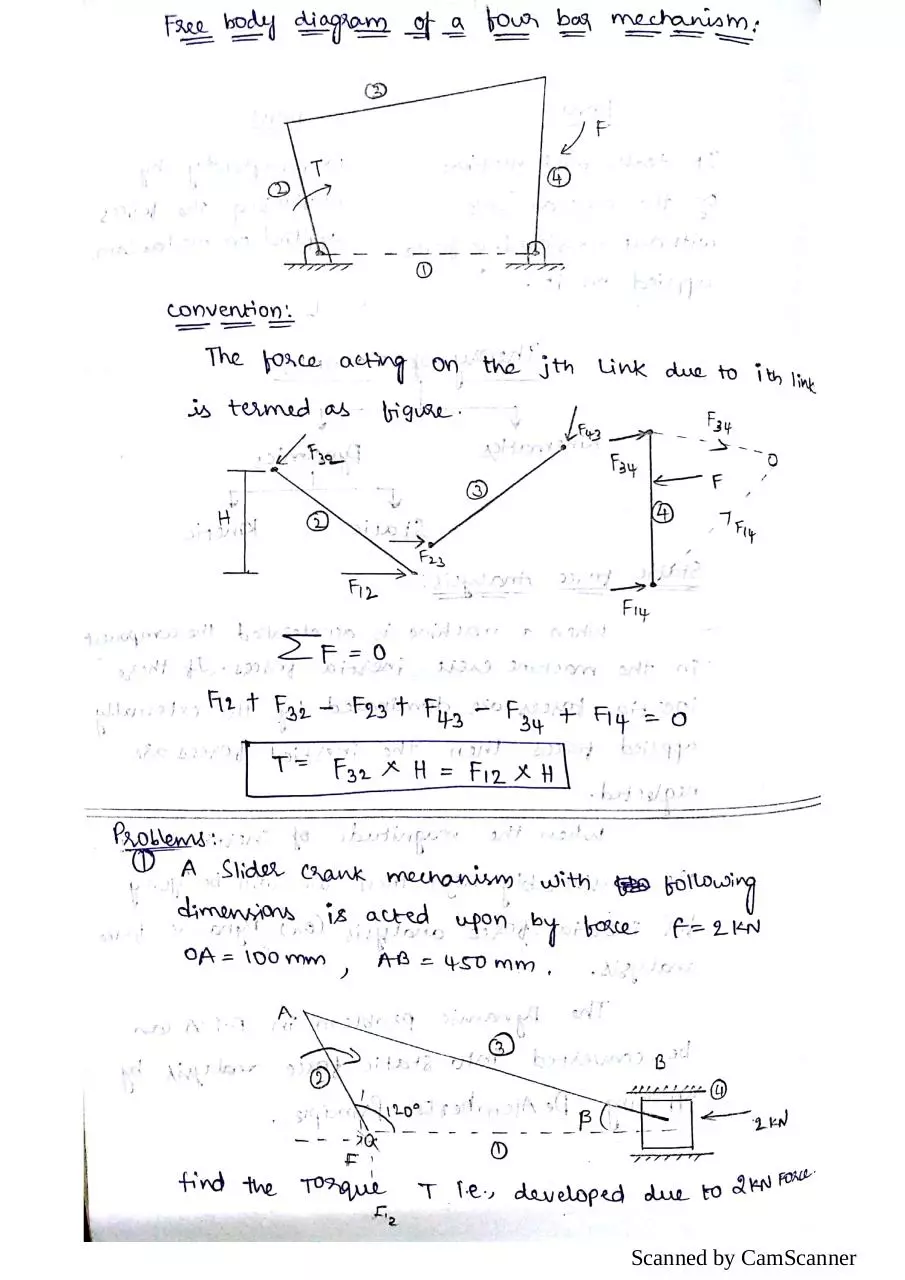 Free body diagram of a four bar mechanism:
③
F
T
②
④
①
convention:
The force acting on the jth Link due to ith link
is termed as figure.
F32
F43
F34
F34
O
F
H
②
③
④
F14
F23
F12
F14
ΣF = 0
F12 + F32 - F23 + F43 - F34 + F14 = 0
T = F32 × H = F12 × H
Problems:
① A Slider crank mechanism with following
dimensions is acted upon by force f = 2 KN
OA = 100 mm, AB = 450 mm.
A.
③
B
②
④
120°
β
2 KN
O
①
F
find the Torque T i.e., developed due to 2 KN Force.
F12
Scanned by CamScanner